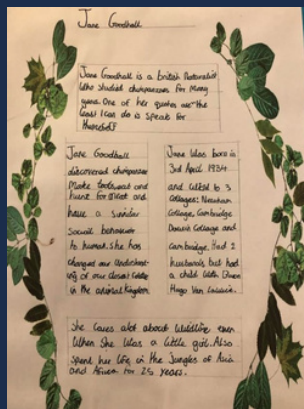 Jane Goodhall
Jane Goodhall is a british Naturalist
Who studied chimpanzees for Many
years. One of her quotes are "the
least I can do is speak for
Jane Goodhall
discovered chimpanzee
Make tools, eat and
hunt for Meat and
have a similar
social behaviour
to human. She has
changed our Understand-
ing of our closest
in the animal Kingdom
Jane Was born in
3rd April 1934
and to 3
Collages: Newnham
Collage, Cambridge
Darwin Collage and
Cambridge. Had 2
husbands but had
a child With
Hugo Van
She Cares alot about Wildlife even
When She Was a little girl. Also
Spent her life in the Jungles of Asia
and Africa for 25 years.